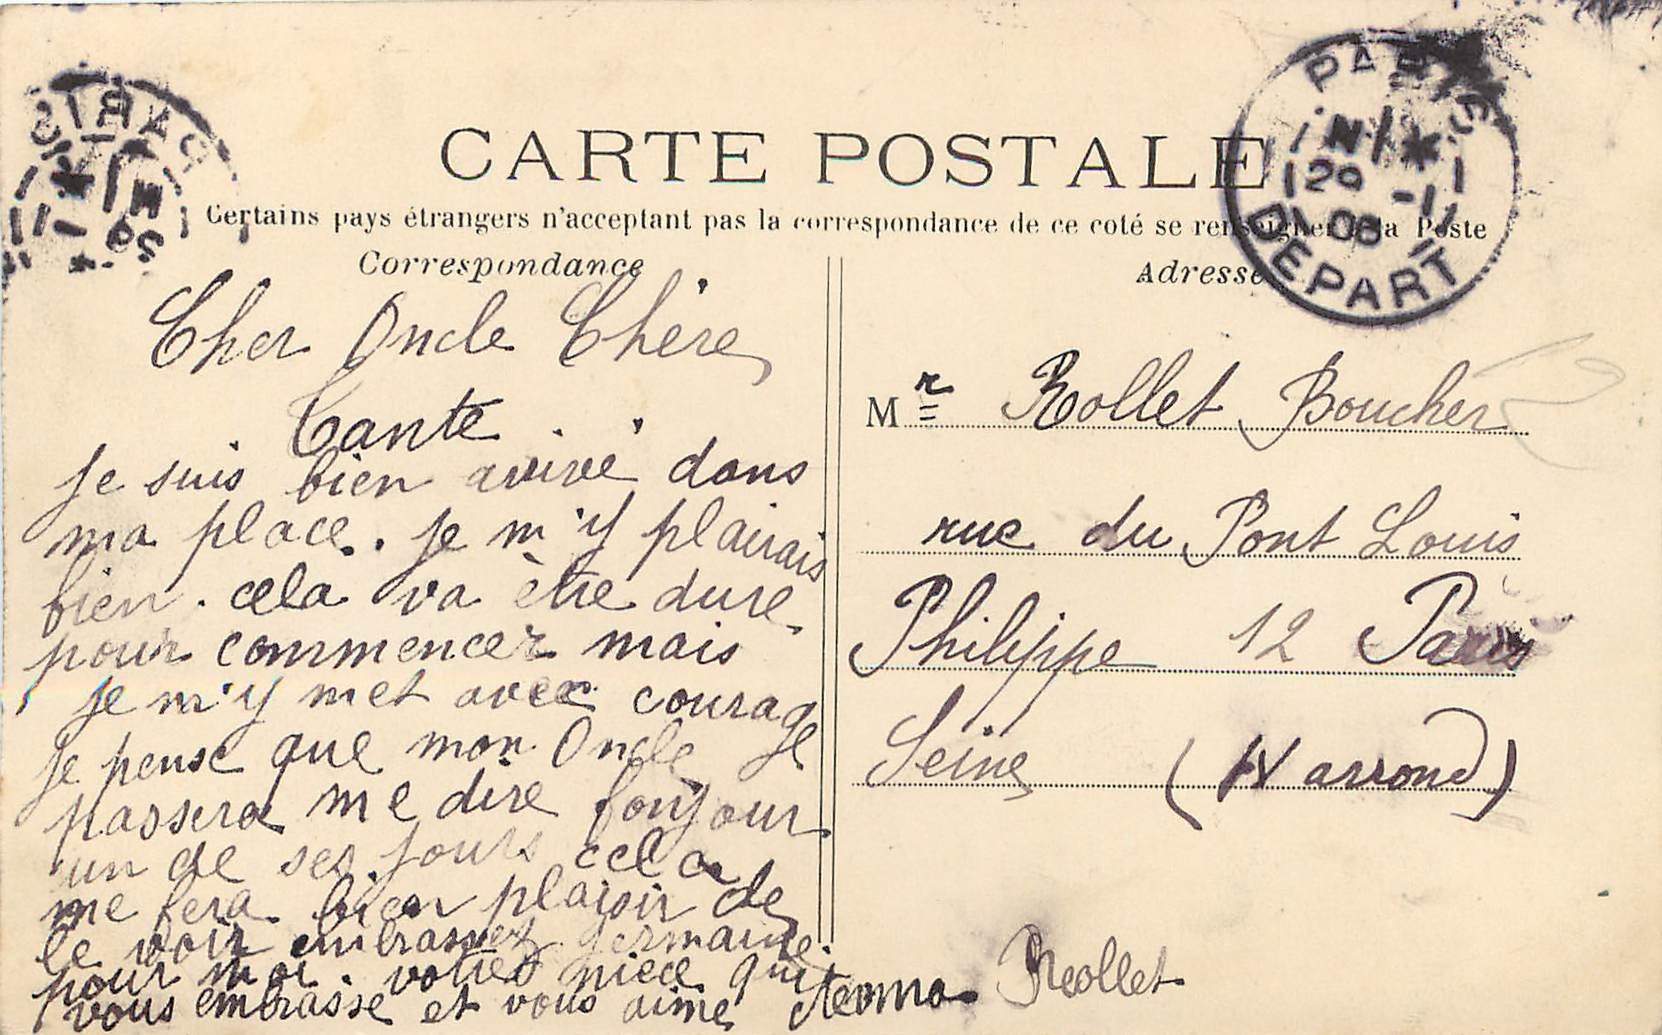 CARTE POSTALE
Certains pays étrangers n'acceptant pas la correspondance de ce coté se renseigner à la Poste
Correspondance
Adresse
PARIS
29 -1
08
DEPART
PARIS
29
Cher Oncle Chère
Tante
je suis bien arivé dans
ma place. je m'y plairais
bien. cela va ètre dure
pour commencer mais
je m'y met avec courage
je pense que mon Oncle
passera me dire bonjour
un de ses jours cela
me fera bien plaisir de
le voir embrassez germaine
pour moi. votres niece qui
vous embrasse et vous aime
Rollet
Mr Rollet Boucher
rue du Pont Louis
Philippe 12 Paris
Seine (IV arrond)